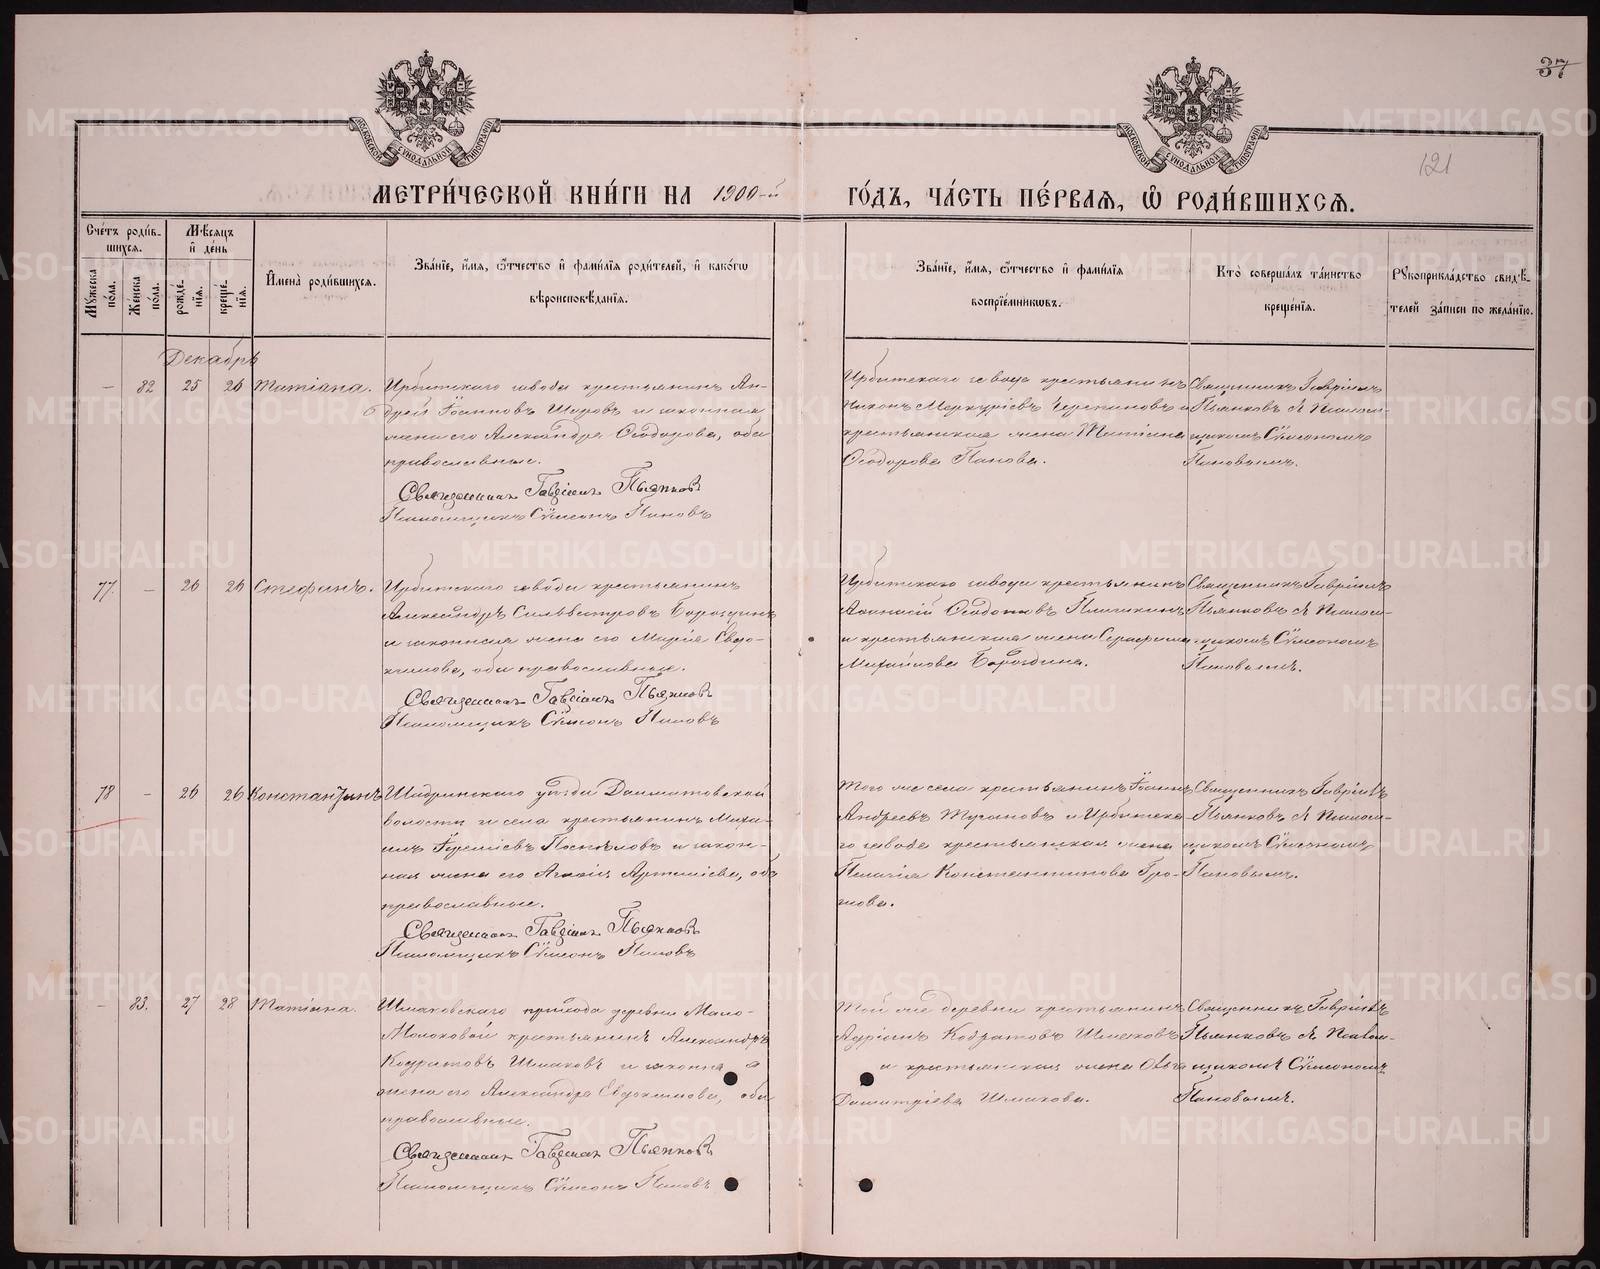 37
121
МЕТРИ́ЧЕСКОЙ КНИ́ГИ НА 1900-й ГО́ДЪ, ЧА́СТЬ ПЕ́РВАѦ, Ѡ҆ РОДИ́ВШИХСѦ.
Сче́тъ роди́вшихсѧ.
Мꙋ́жеска по́ла.
Же́нска по́ла.
Мѣ́сѧцъ и҆ де́нь
рожде́нїѧ.
креще́нїѧ.
И҆мена̀ роди́вшихсѧ.
Зва́нїе, и҆́мѧ, ѻ҆́тчество и҆ фами́лїѧ роди́телей, и҆ како́гѡ
вѣроисповѣ́данїѧ.
Зва́нїе, и҆́мѧ, ѻ҆́тчество и҆ фами́лїѧ
воспрїе́мникѡвъ.
Кто̀ соверша́лъ та́инство
креще́нїѧ.
Рꙋкоприкла́дство свидѣ́-
телей за́писи по жела́нїю.
Декабрь
— 82 25 26 Татіана.
Ирбитскаго завода крестьянинъ Ан-
дрей Іоанновъ Шаровъ и законная
жена его Александра Ѳеодорова, оба
православные.
Священникъ Гавріилъ Пьянковъ
Псаломщикъ Сѵмеонъ Пановъ
Ирбитскаго завода крестьянинъ
Никонъ Меркуріевъ Черепановъ и
крестьянская жена Татіана
Ѳеодорова Панова.
Священникъ Гавріилъ
Пьянковъ съ Псалом-
щикомъ Сѵмеономъ
Пановымъ.
77. — 26 26 Стефанъ.
Ирбитскаго завода крестьянинъ
Александръ Сильвестровъ Бороздинъ
и законная жена его Марія Евдо-
кимова, оба православные.
Священникъ Гавріилъ Пьянковъ
Псаломщикъ Сѵмеонъ Пановъ
Ирбитскаго завода крестьянинъ
Ѳеодотовъ
и крестьянская жена Серафима
Михайлова Бороздина.
Священникъ Гавріилъ
Пьянковъ съ Псалом-
щикомъ Сѵмеономъ
Пановымъ.
78 — 26 26 Константинъ
Шадринскаго уѣзда Далматовской
волости и села крестьянинъ Миха-
илъ Поспѣловъ и закон-
ная жена его Артеміева, оба
православные.
Священникъ Гавріилъ Пьянковъ
Псаломщикъ Сѵмеонъ Пановъ
Того же села крестьянинъ Іоаннъ
Андреевъ и Ирбитска-
го завода крестьянская жена
Пелагія Константинова Гро-
мова.
Священникъ Гавріилъ
Пьянковъ съ Псалом-
щикомъ Сѵмеономъ
Пановымъ.
— 83. 27 28 Татіана.
Шмаковскаго прихода деревни Мало-
Молоковой крестьянинъ Александръ
Кодратовъ Шмаковъ и законная
жена его Александра Евдокимова, оба
православные.
Священникъ Гавріилъ Пьянковъ
Псаломщикъ Сѵмеонъ Пановъ
Той же деревни крестьянинъ
Адріанъ Кодратовъ Шмаковъ
и крестьянская жена Ольга
Димитріева Шмакова.
Священникъ Гавріилъ
Пьянковъ съ Псалом-
щикомъ Сѵмеономъ
Пановымъ.
METRIKI.GASO-URAL.RU